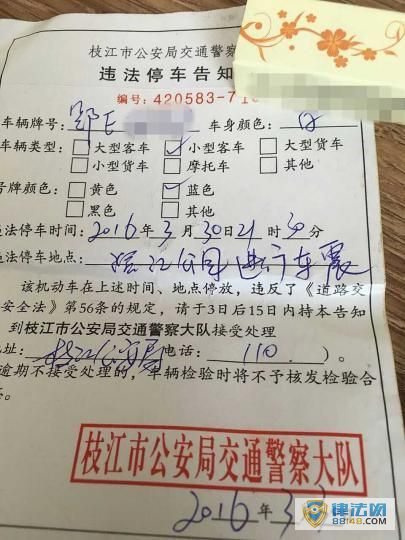 枝江市公安局交通警察
违法停车告知
编号:420583-716
车辆牌号: 鄂E 车身颜色: 白
车辆类型: 大型客车 小型客车 大型货车
小型货车 摩托车 其他
号牌颜色: 黄色 蓝色
黑色 其他
违法停车时间: 2016年3月30日21时30分
违法停车地点: 滨江公园进行车震
该机动车在上述时间、地点停放,违反了《道路交
安全法》第56条的规定,请于3日后15日内持本告知
到枝江市公安局交通警察大队接受处理
地址: 枝江公安局 电话: 110 )。
逾期不接受处理的,车辆检验时将不予核发检验合
枝江市公安局交通警察大队
2016年3
律法网
88148.com